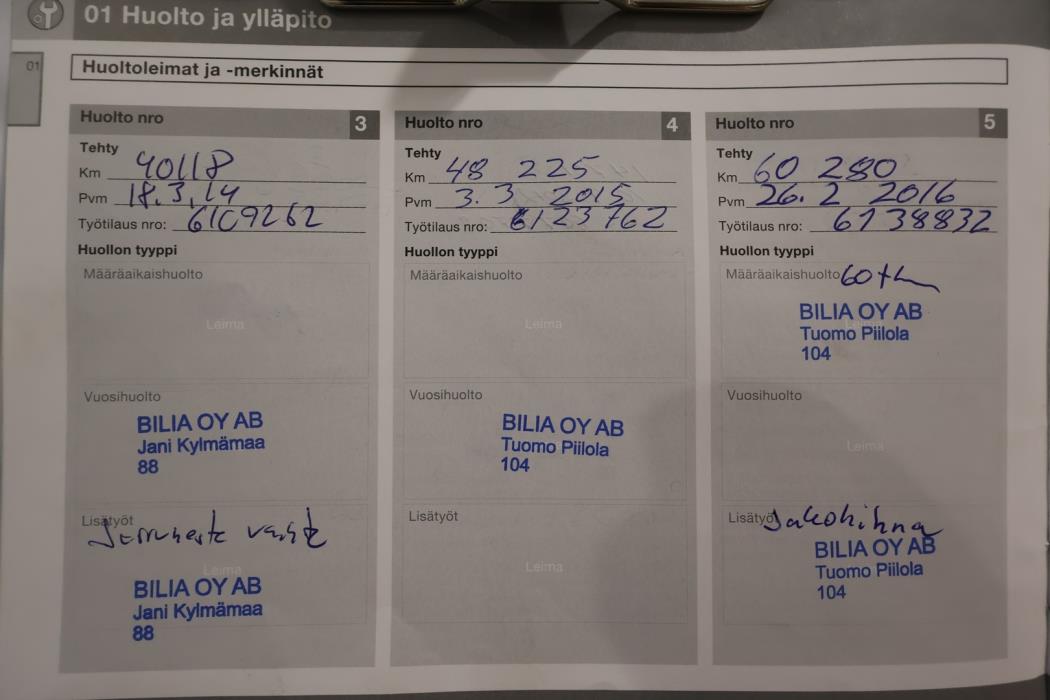 01 Huolto ja ylläpito
01
Huoltoleimat ja -merkinnät
Huolto nro 3
Tehty
Km 40118
Pvm 18.3.14
Työtilaus nro: 6109262
Huollon tyyppi
Määräaikaishuolto
Leima
Vuosihuolto
BILIA OY AB
Jani Kylmämaa
88
Lisätyöt
Jarruneste vaihto
Leima
BILIA OY AB
Jani Kylmämaa
88
Huolto nro 4
Tehty
Km 48 225
Pvm 3.3 2015
Työtilaus nro: 6123762
Huollon tyyppi
Määräaikaishuolto
Leima
Vuosihuolto
BILIA OY AB
Tuomo Piilola
104
Lisätyöt
Leima
Huolto nro 5
Tehty
Km 60 280
Pvm 26.2 2016
Työtilaus nro: 6138832
Huollon tyyppi
Määräaikaishuolto 60t
BILIA OY AB
Tuomo Piilola
104
Vuosihuolto
Leima
Lisätyöt Jakohihna
BILIA OY AB
Tuomo Piilola
104